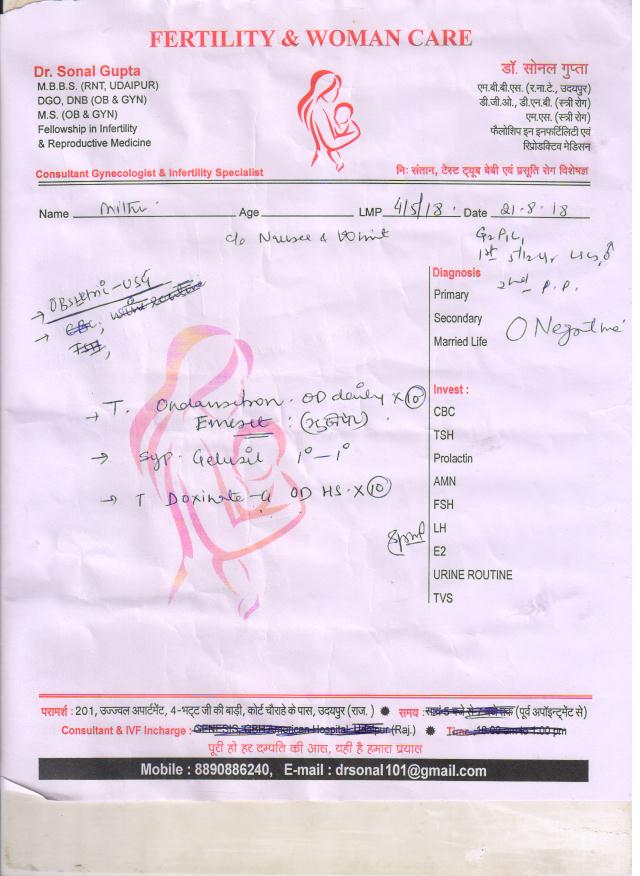 FERTILITY & WOMAN CARE
Dr. Sonal Gupta
M.B.B.S. (RNT, UDAIPUR)
DGO, DNB (OB & GYN)
M.S. (OB & GYN)
Fellowship in Infertility
& Reproductive Medicine
Consultant Gynecologist & Infertility Specialist
डॉ. सोनल गुप्ता
एम.बी.बी.एस. (र.ना.टे., उदयपुर)
डी.जी.ओ., डी.एन.बी. (स्त्री रोग)
एम.एस. (स्त्री रोग)
फैलोशिप इन इनफर्टिलिटी एवं
रिप्रोडक्टिव मेडिसन
निः संतान, टेस्ट ट्यूब बेबी एवं प्रसूति रोग विशेषज्ञ
Name Age LMP 4/5/18. Date 21.8.18
c/o & Vomit
1st
2nd P.P.
O Negative
→ -USG
→ CBC,
TSH,
→ T. Ondansetron. OD daily x 10
Emeset
→ Syp. Gelusil 1°-1°
→ T Doxinate-G OD HS. x 10
Diagnosis
Primary
Secondary
Married Life
Invest :
CBC
TSH
Prolactin
AMN
FSH
LH
E2
URINE ROUTINE
TVS
परामर्श : 201, उज्ज्वल अपार्टमेंट, 4-भट्ट जी की बाड़ी, कोर्ट चौराहे के पास, उदयपुर (राज.) समय : सायं 5 बजे से 7 बजे तक (पूर्व अपॉइन्टमेंट से)
Consultant & IVF Incharge : GENESIS, GBH American Hospital Udaipur (Raj.) Time : 10:00 am to 1:00 pm
पूरी हो हर दम्पति की आस, यही है हमारा प्रयास
Mobile : 8890886240, E-mail : drsonal101@gmail.com